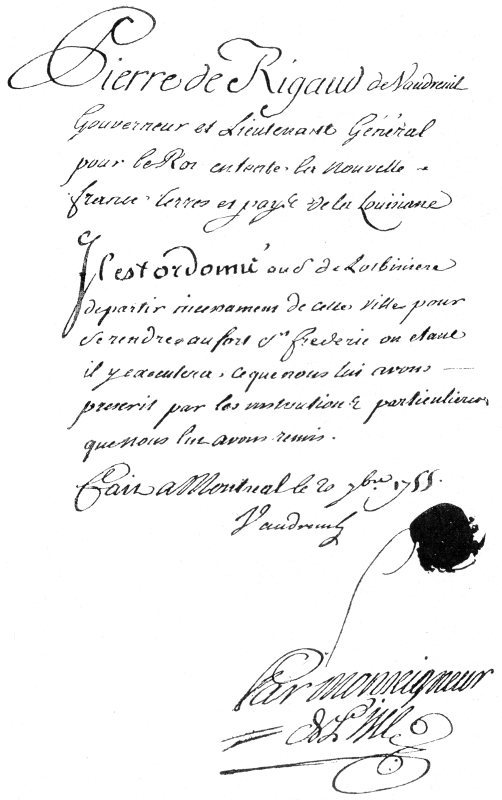 Pierre de Rigaud de Vaudreuil
Gouverneur et Lieutenant Général
pour le Roi en toute la nouvelle
france terres et pays de la Louisiane
Il est ordonné au S. de Lotbiniere
de partir incessament de cette ville pour
se rendre au fort St. frederic ou etant
il y executera ce que nous lui avons
prescrit par les instructions particulieres
que nous lui avons remis.
fait a Montreal le 20 7bre 1755.
Vaudreuil
Par monseigneur